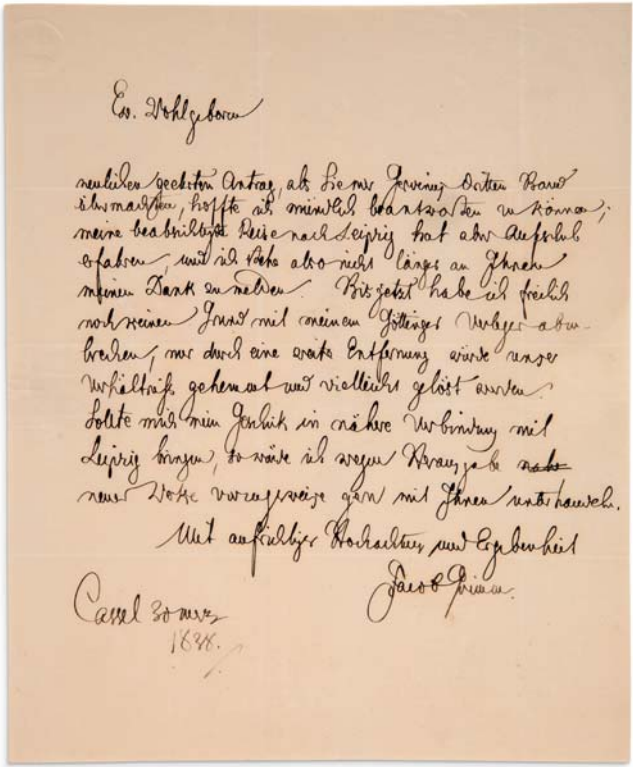 Ew. Wohlgeboren
neulichen geehrten Antrag, als Sie mir Gervinus dritten Band
übermachten, hoffte ich mündlich beantworten zu können;
meine beabsichtigte Reise nach Leipzig hat aber Aufschub
erfahren, und ich stehe also nicht länger an Ihnen
meinen Dank zu melden. Bis jetzt habe ich freilich
noch keinen Grund mit meinem Göttinger Verleger abzu-
brechen, nur durch eine weite Entfernung würde unser
Verhältniß gehemmt und vielleicht gelöst werden.
Sollte mich mein Geschik in nähere Verbindung mit
Leipzig bringen, so würde ich wegen Herausgabe
neuer Werke vorzugsweise gern mit Ihnen unterhandeln.
Mit aufrichtiger Hochachtung und Ergebenheit
Jacob Grimm.
Cassel 30 merz
1838.